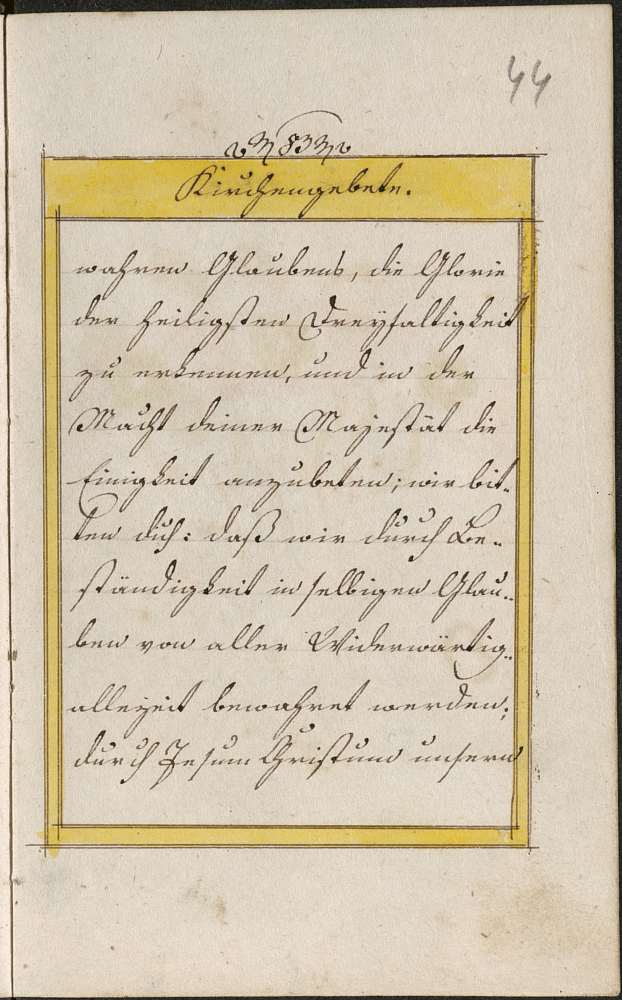 44
83
Kirchengebete.
wahren Glaubens, die Glorie
der heiligsten Dreyfaltigkeit
zu erkennen, und in der
Macht deiner Majestät die
Einigkeit anzubeten; wir bit-
ten dich: daß wir durch Be-
ständigkeit in selbigen Glau-
ben von aller Widerwärtig-
allezeit bewahret werden;
durch Jesum Christum unsern